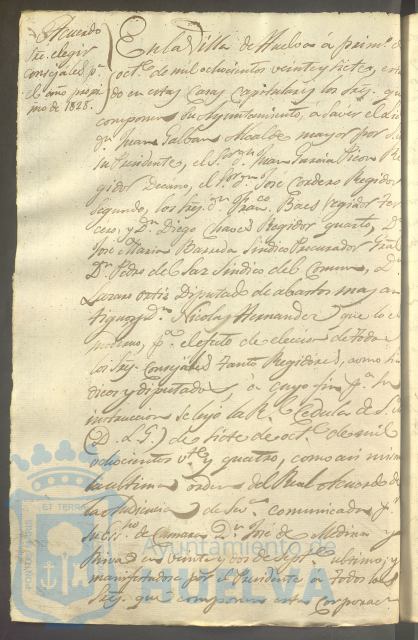 Acuerdo
sre. elegir
consejales p.a
el año proxi
mo de 1828.
En la Villa de Huelva á prim.o de
oct.e de mil ochocientos veinte y siete, es
do en estas Casas Capitulares los Sres. que
componen su Ayuntamiento, á saver el Lic.
d.n Juan Galban Alcalde mayor por S.
su Presidente, el S.or d.n Juan Garcia Re
gidor Decano, el S.or d.n José Cordero Regidor
segundo, los Sres. d.n Fran.co Baes regidor ter
cero, y D.n Diego Chaves Regidor quarto, D.n
José Maria Barreda Sindico Procurador Gral
D.n Pedro de Paz Sindico del Comun, D.n
Lazaro Ortiz Diputado de abastos mas an
tiguo y D.n Nicolas Hernandez que lo es
moderno, p.a efecto de eleccion de todos
los Sres. Consejales tanto Regidores, como Sin
dicos y diputados, á cuyo fin p.a su
instruccion se leyó la R.l Cedula de S.M.
(Q. D. G.) de siete de oct.e de mil
ochocientos v.te y quatro, como asi mismo
la ultima orden del Real Acuerdo de
la Audiencia de Sev.a comunicada p.r
su Es.no de Camara D.n José de Medina y
en veinte y dos de Sept.e ultimo; y
manifestadose por el Presidente á todos los
Sres. que componen esta Corporac
PORTUS MARIS
ET TERRAE
Ayuntamiento de
HUELVA